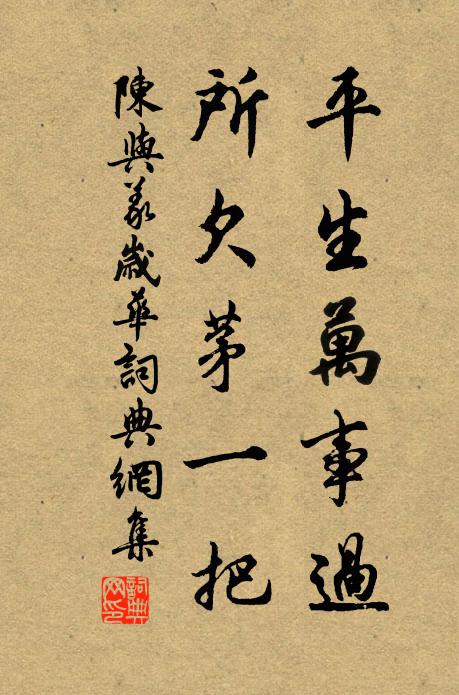 平生萬事過
所欠茅一把
陳與義歲華詞典網集
詞典網印